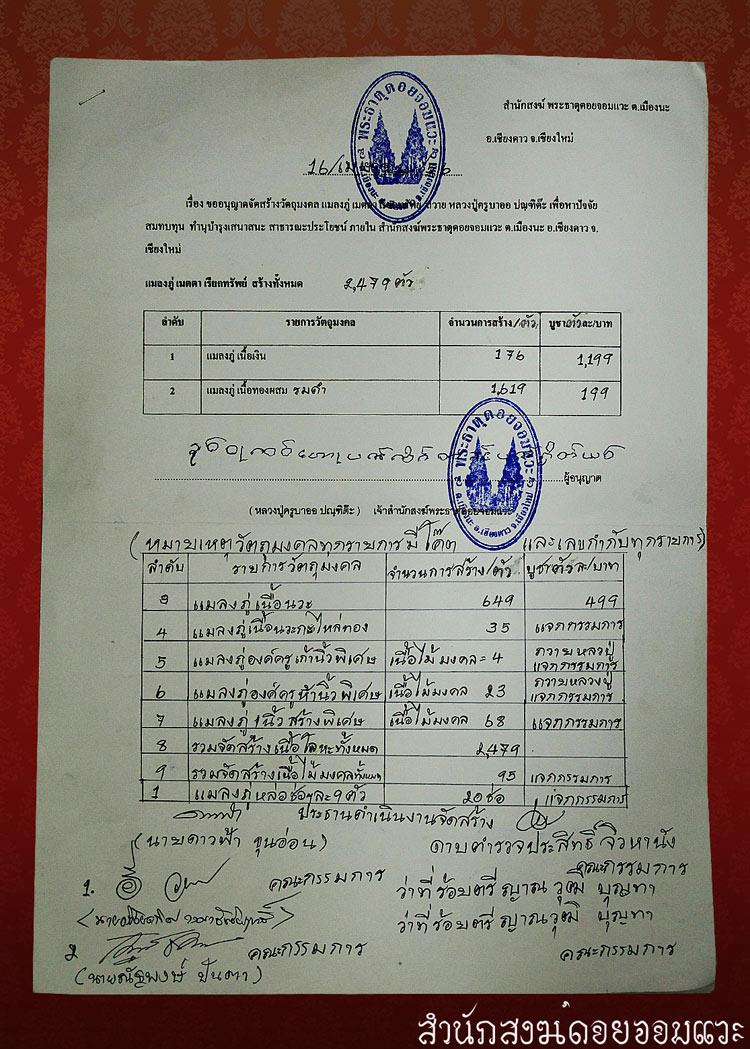 สำนักสงฆ์ พระธาตุดอยจอมแวะ ต.เมืองนะ
อ.เชียงดาว จ.เชียงใหม่
พระธาตุดอยจอมแวะ
ต.เมืองนะ อ.เชียงดาว จ.เชียงใหม่
16/เมษา
เรื่อง ขออนุญาตจัดสร้างวัตถุมงคล แมลงภู่ เมตตา เรียกทรัพย์ ถวาย หลวงปู่ครูบาออ ปณฺฑิต๊ะ เพื่อหาปัจจัย
สมทบทุน ทำนุบำรุงเสนาสนะ สาธารณะประโยชน์ ภายใน สำนักสงฆ์พระธาตุดอยจอมแวะ ต.เมืองนะ อ.เชียงดาว จ.
เชียงใหม่
แมลงภู่ เมตตา เรียกทรัพย์ สร้างทั้งหมด 2,479 ตัว
ลำดับ รายการวัตถุมงคล จำนวนการสร้าง/ตัว บูชาตัวละ/บาท
1 แมลงภู่ เนื้อเงิน 176 1,199
2 แมลงภู่ เนื้อทองผสม รมดำ 1,619 199
พระธาตุดอยจอมแวะ
ต.เมืองนะ อ.เชียงดาว จ.เชียงใหม่
ผู้อนุญาต
(หลวงปู่ครูบาออ ปณฺฑิต๊ะ) เจ้าสำนักสงฆ์พระธาตุดอยจอมแวะ
(หมายเหตุวัตถุมงคลทุกรายการมีโค๊ต และเลขกำกับทุกรายการ)
ลำดับ รายการวัตถุมงคล จำนวนการสร้าง/ตัว บูชาตัวละ/บาท
3 แมลงภู่เนื้อนวะ 649 499
4 แมลงภู่เนื้อนวะกะไหล่ทอง 35 แจกกรรมการ
5 แมลงภู่องค์ครูเก้านิ้วพิเศษ เนื้อไม้มงคล = 4 ถวายหลวงปู่ แจกกรรมการ
6 แมลงภู่องค์ครูห้านิ้วพิเศษ เนื้อไม้มงคล 23 ถวายหลวงปู่ แจกกรรมการ
7 แมลงภู่ 1 นิ้ว สร้างพิเศษ เนื้อไม้มงคล 68 แจกกรรมการ
8 รวมจัดสร้างเนื้อโลหะทั้งหมด 2,479
9 รวมจัดสร้างเนื้อไม้มงคลทั้งหมด 95 แจกกรรมการ
1 แมลงภู่หล่อช่อๆละ 9 ตัว 20 ช่อ แจกกรรมการ
ประธานดำเนินงานจัดสร้าง
(นายดาวฟ้า ขุนอ่อน) ดาบตำรวจประสิทธิ์ จิวหานัง
คณะกรรมการ
1. คณะกรรมการ ว่าที่ร้อยตรี ญาณวุฒิ บุญทา
ว่าที่ร้อยตรี ญาณวุฒิ บุญทา
2 คณะกรรมการ คณะกรรมการ
(นายณัฐพงษ์ ปันตา)
สำนักสงฆ์ดอยจอมแวะ